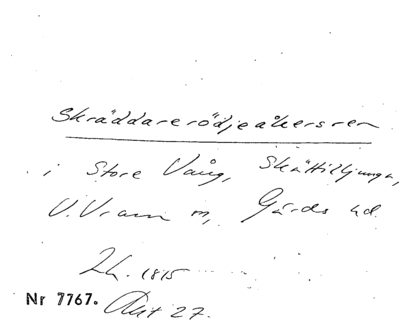 Skräddarerödjeåkersren
i Store Vång, Skättilljunga,
V. Vram s, Gärds hd.
Lh. 1815
Nr 7767. Akt 27.